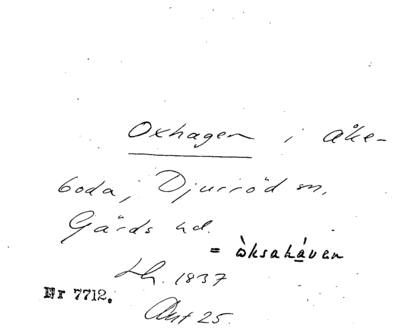 Oxhagen i Åke-
boda, Djurröd sn.
Gärds hd.
= òksahá̱ven
Lh. 1837
Nr 7712.
Akt 25.